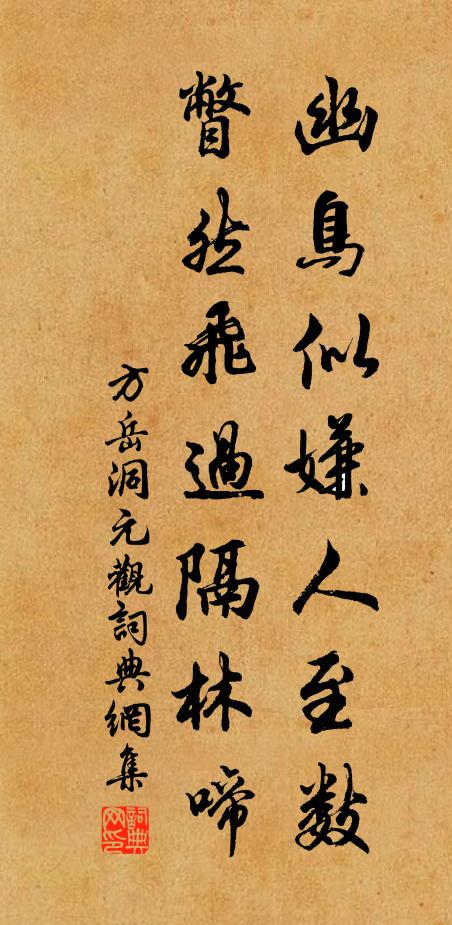 幽鳥似嫌人至數
瞥然飛過隔林啼
方岳洞元觀詞典網集
詞典网印